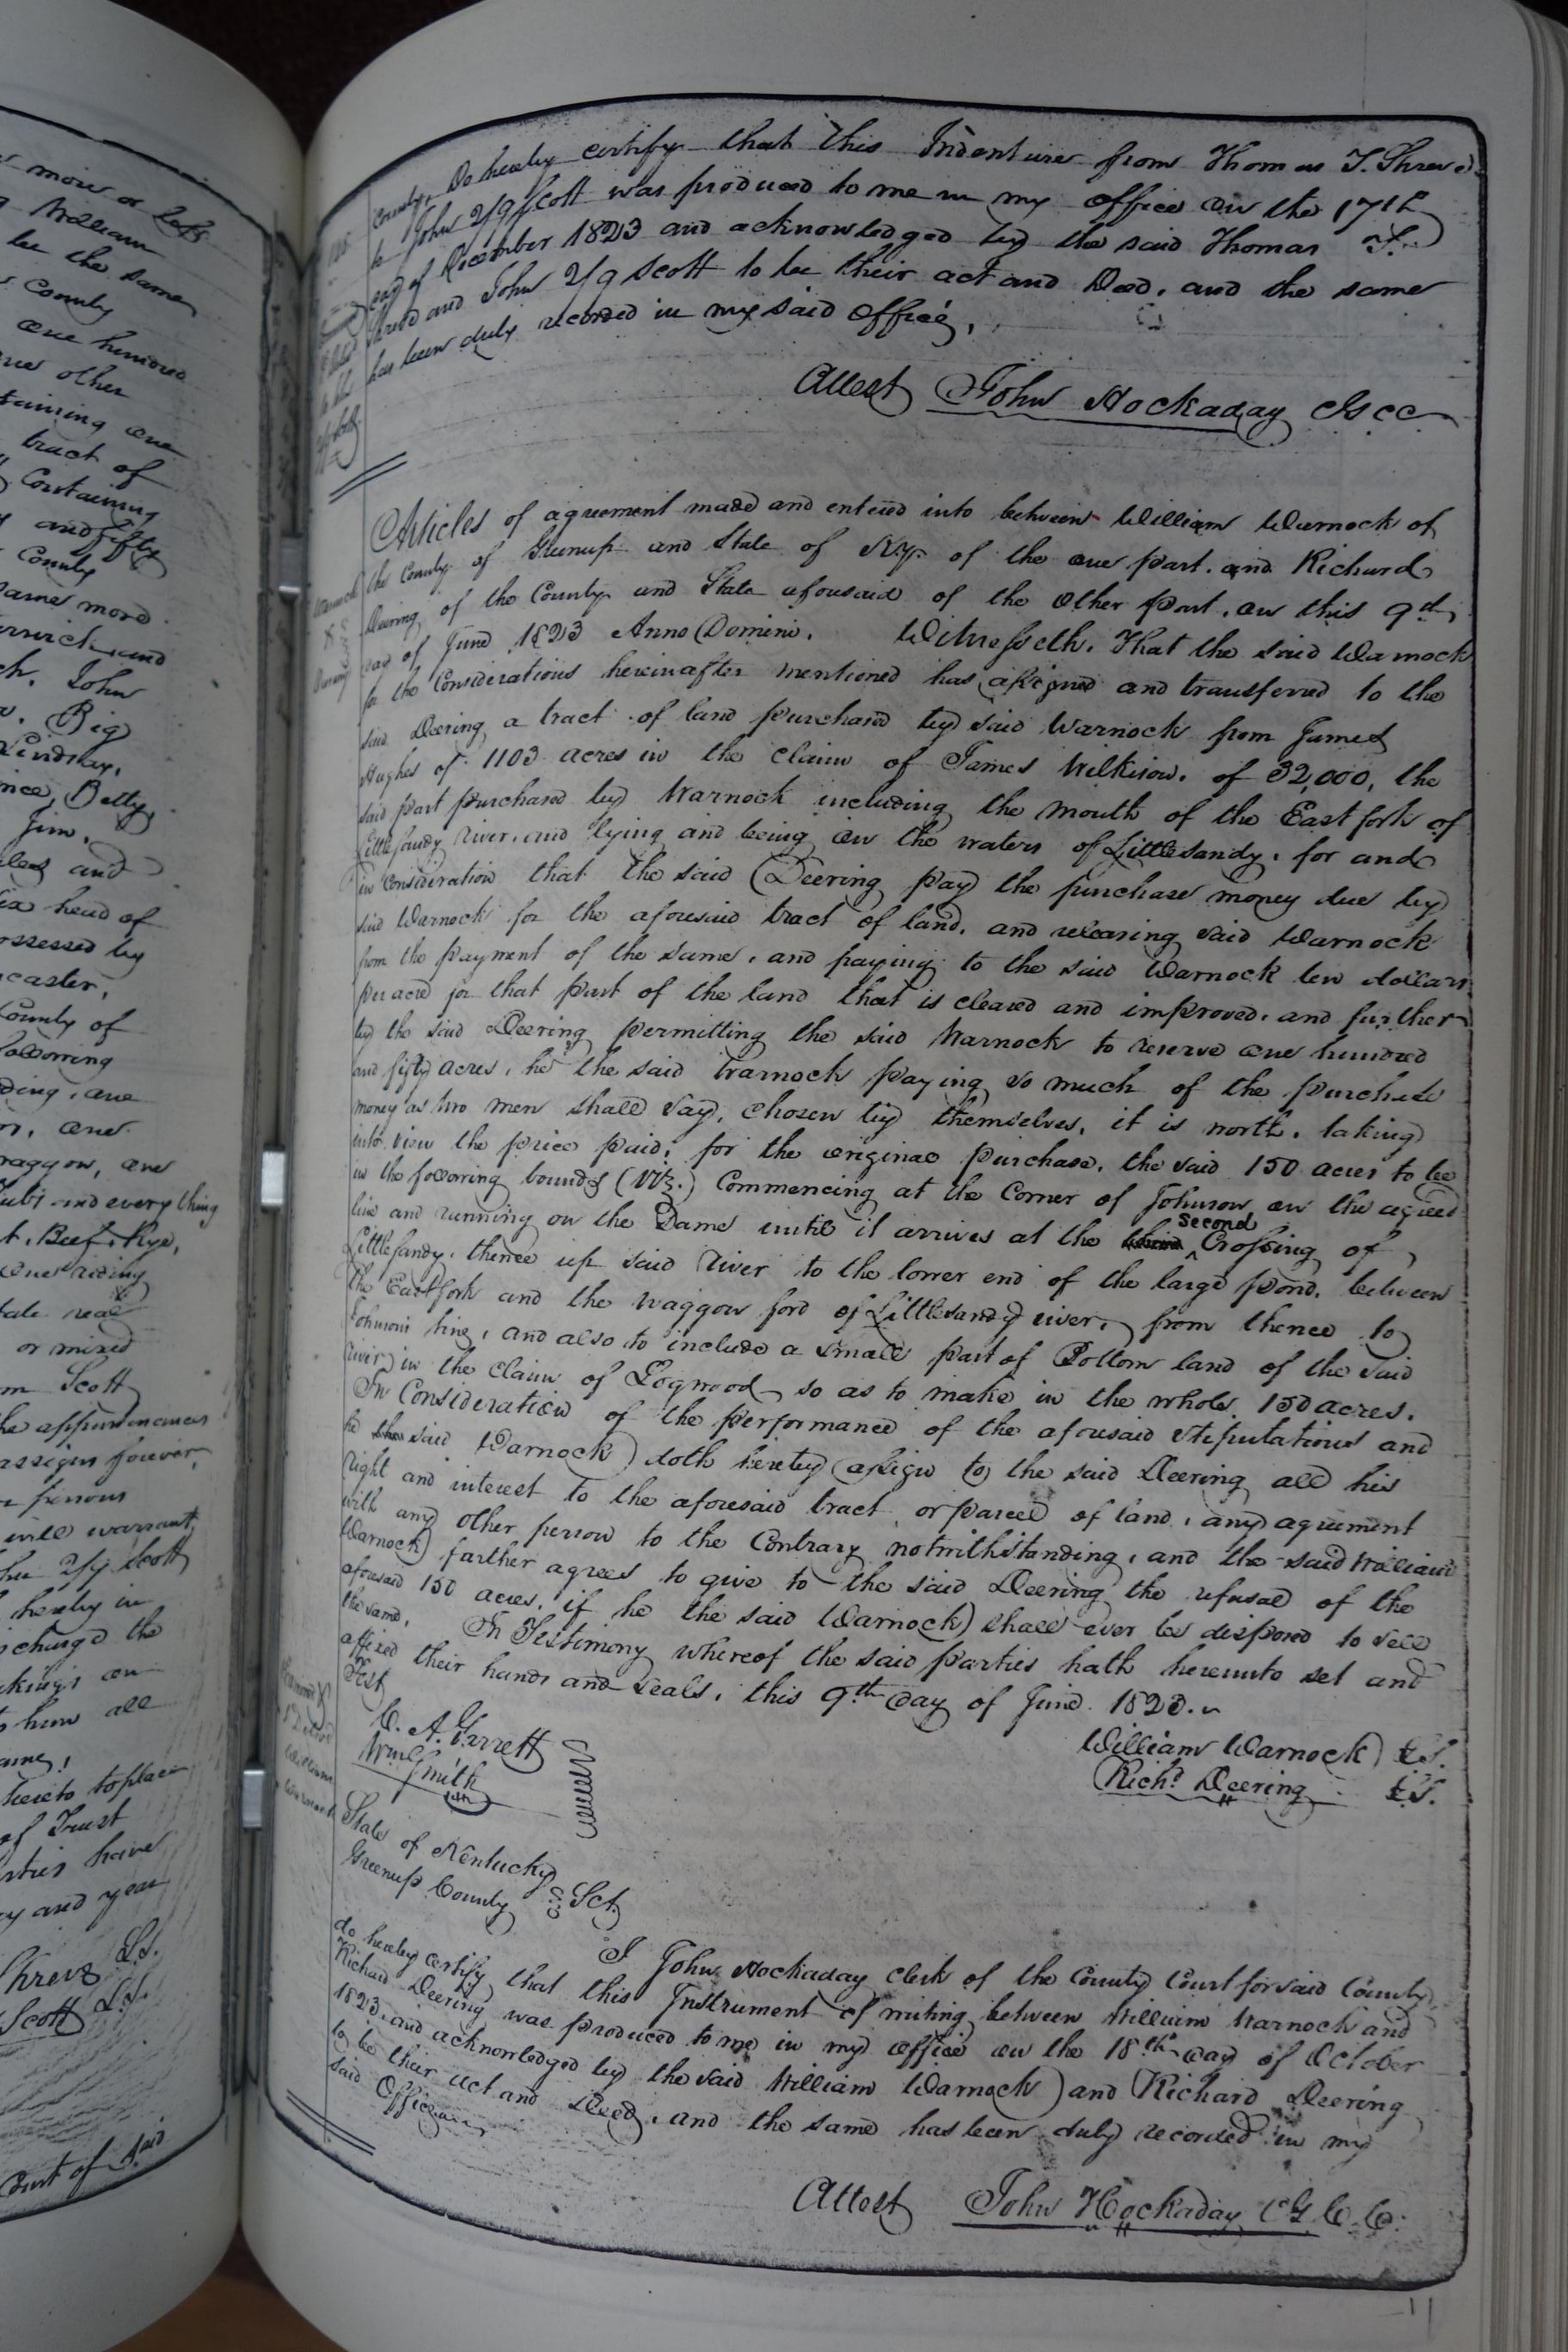 more or less
William
be the same
County
one hundred
other
taining one
tract of
Containing
and fifty
County
same more
and
John
Big
Lindsay,
Betty,
Jim,
and
head of
possessed by
County of
following
one
one
waggon, one
and every thing
Beef, Rye,
one riding
real
or mixed
Scott
the appurtenances
assigns forever,
persons
will warrant
John 2/9 Scott
hereby in
discharge the
on
him all
same,
hereto to place
of Trust
parties have
day and year
Shreve L.S.
Scott L.S.
Court of Said
County, Do hereby certify that this Indenture from Thomas T. Shreve
to John 2/9 Scott was produced to me in my office on the 17th
day of December 1823 and acknowledged by the said Thomas T.
Shreve and John 2/9 Scott to be their act and Deed, and the same
has been duly recorded in my said office,
Attest John Hockaday Cgcc
Articles of agreement made and entered into between William Warnock of
the County of Greenup and State of Ky. of the one part, and Richard
Deering of the County and State aforesaid of the other part, on this 9th
day of June 1823 Anno Domini. Witnesseth, That the said Warnock
for the Considerations hereinafter mentioned has assigned and transferred to the
said Deering a tract of land purchased by said Warnock from James
Hughes of 1103 acres in the claim of James Wilkison, of 32,000, the
said part purchased by Warnock including the mouth of the East fork of
Little sandy river, and lying and being on the waters of Little sandy, for and
in consideration that the said Deering pay the purchase money due by
said Warnock for the aforesaid tract of land, and releasing said Warnock
from the payment of the same, and paying to the said Warnock ten dollars
per acre for that part of the land that is cleared and improved, and further
by the said Deering permitting the said Warnock to reserve one hundred
and fifty acres, he the said Warnock paying so much of the purchase
money as two men shall say, chosen by themselves, it is worth, taking
into view the price paid, for the original purchase, the said 150 acres to be
in the following bounds (Viz.) Commencing at the Corner of Johnson on the agreed
line and running on the Same until it arrives at the third Second Crossing of
Little sandy, thence up said River to the lower end of the large pond, between
the East fork and the waggon ford of Little sandy river, from thence to
Johnsons line, and also to include a small part of Bottom land of the said
river in the claim of Logwood so as to make in the whole 150 acres.
In Consideration of the performance of the aforesaid stipulations and
he the said Warnock doth hereby assign to the said Deering all his
right and interest to the aforesaid tract or parcel of land, any agreement
with any other person to the Contrary notwithstanding, and the said William
Warnock farther agrees to give to the said Deering the refusal of the
aforesaid 150 acres, if he the said Warnock shall ever be disposed to sell
the same, In Testimony whereof the said parties hath hereunto set and
affixed their hands and seals, this 9th day of June 1823.
Test
C. A. Garrett
Wm Smith
William Warnock L.S.
Richd Deering L.S.
State of Kentucky
Greenup County Sct,
I John Hockaday Clerk of the County Court for said County
do hereby certify that this Instrument of writing between William Warnock and
Richard Deering was produced to me in my office on the 18th day of October
1823, and acknowledged by the said William Warnock and Richard Deering
to be their act and Deed, and the same has been duly recorded in my
said Office
Attest John Hockaday CGCC.
11